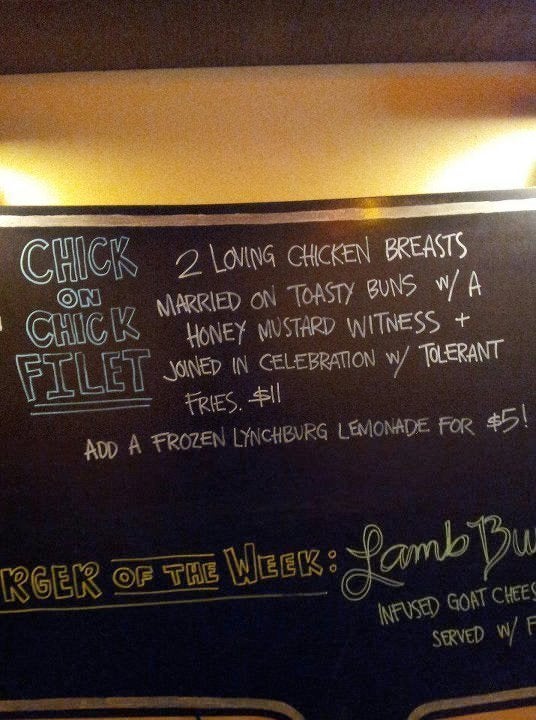 CHICK
ON
CHICK
FILET
2 LOVING CHICKEN BREASTS
MARRIED ON TOASTY BUNS W/ A
HONEY MUSTARD WITNESS +
JOINED IN CELEBRATION W/ TOLERANT
FRIES. $11
ADD A FROZEN LYNCHBURG LEMONADE FOR $5!
RGER OF THE WEEK: Lamb Bu
INFUSED GOAT CHEES
SERVED W/ F